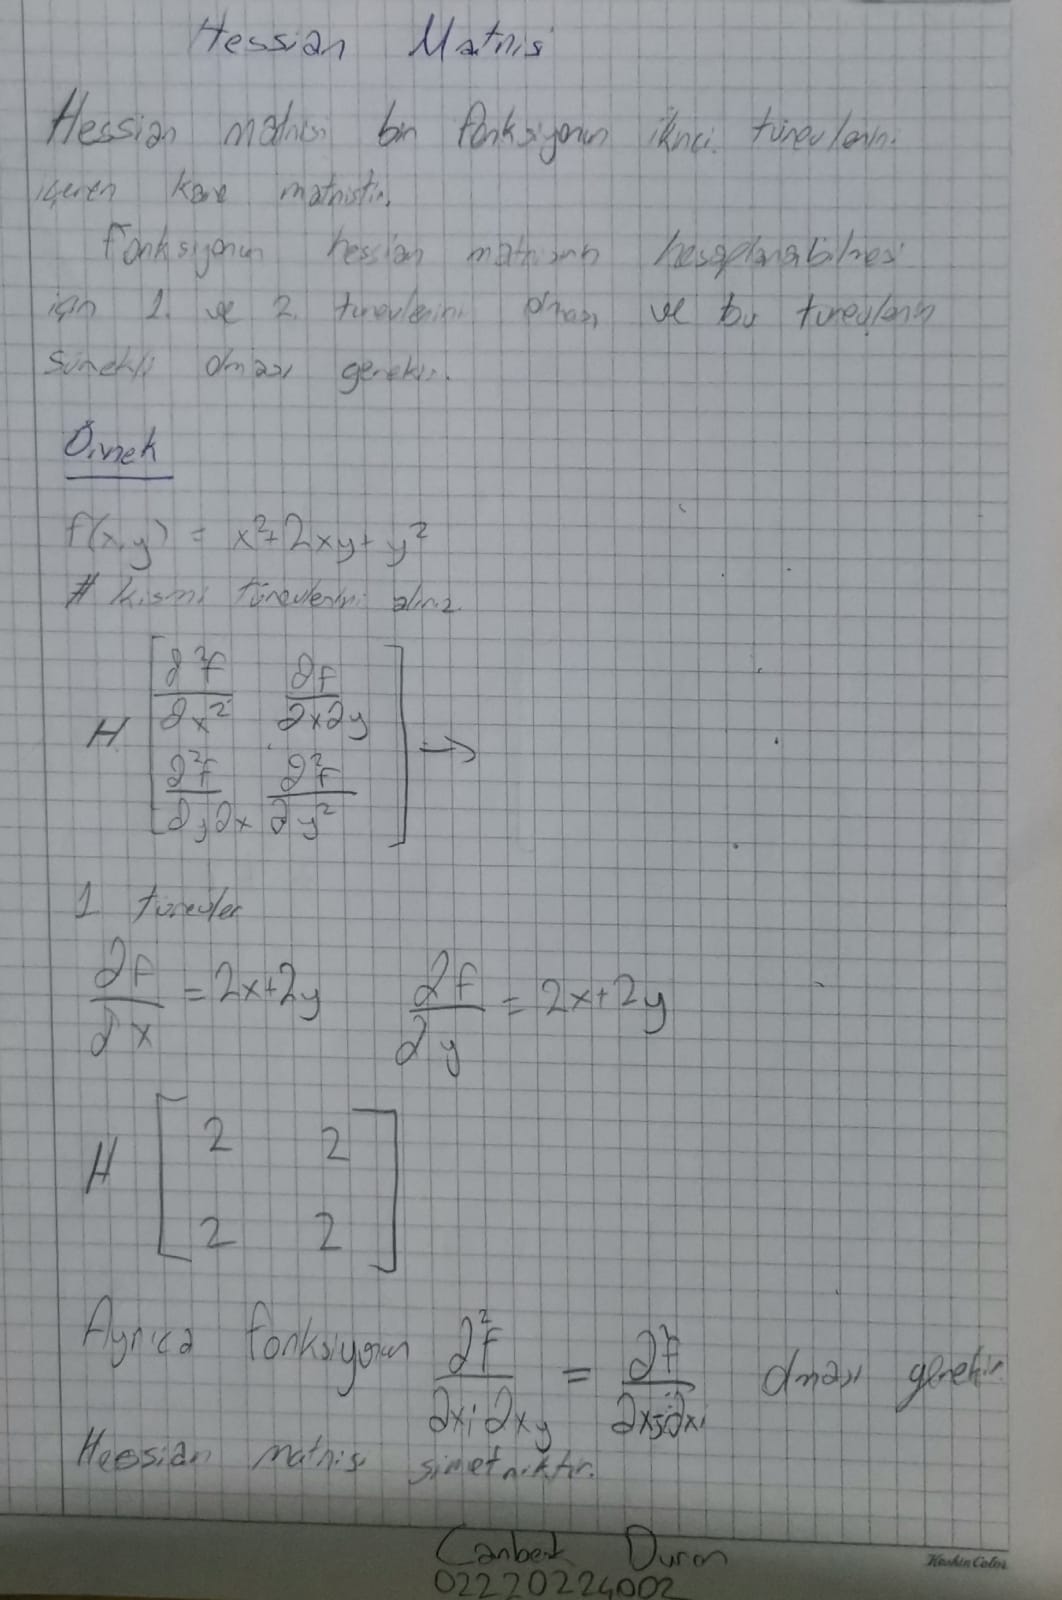 Hessian Matrisi
Hessian matrisi bir fonksiyonun ikinci türevlerini
içeren kare matristir.
Fonksiyonun hessian matrisinin hesaplanabilmesi
için 1. ve 2. türevlerini olması ve bu türevlerin
sürekli olması gerekir.
Örnek
f(x,y) = x²+2xy+y²
# kısmi türevlerini alırız
H [ ∂²f/∂x² ∂f/∂x∂y
∂²f/∂y∂x ∂²f/∂y² ] →
1 türevler
∂f/∂x = 2x+2y ∂f/∂y = 2x+2y
H [ 2 2
2 2 ]
Ayrıca fonksiyonun ∂²f/∂xi∂xy = ∂²f/∂xj∂xi olması gerekir
Hessian matrisi simetriktir.
Canberk Duran
02220224002
Keskin Color